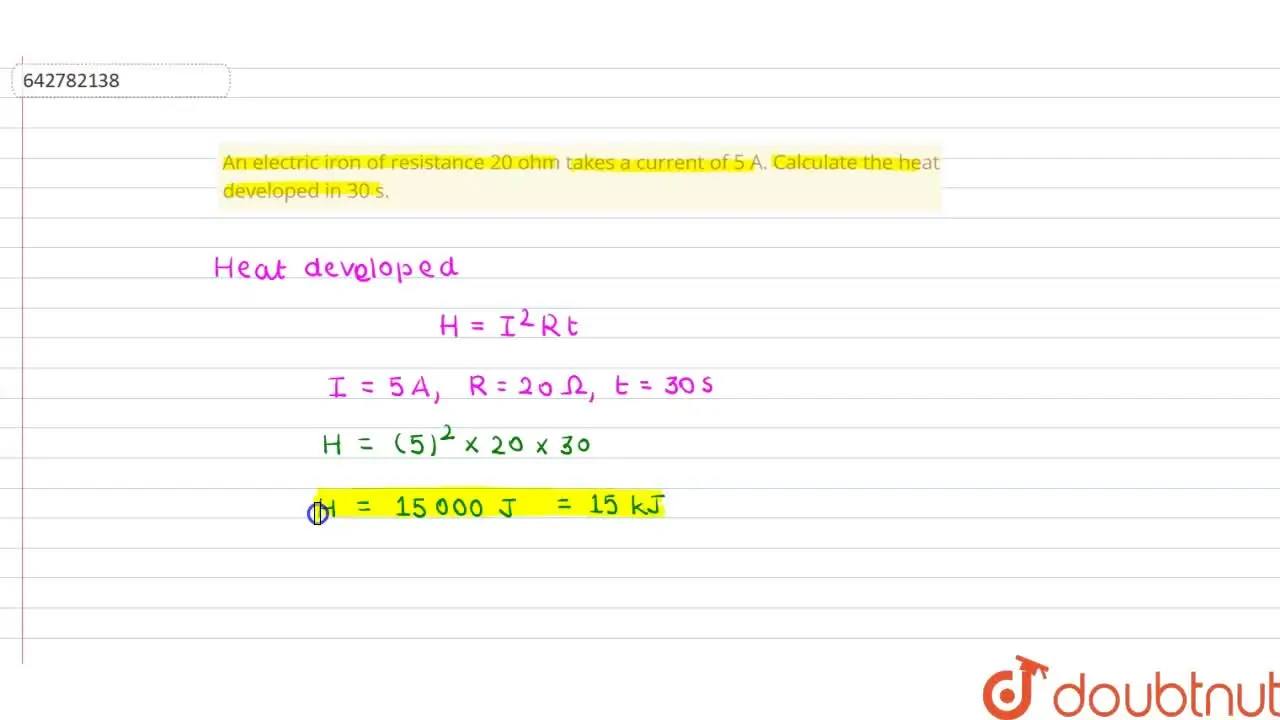 642782138
An electric iron of resistance 20 ohm takes a current of 5 A. Calculate the heat
developed in 30 s.
Heat developed
H = I²Rt
I = 5A, R = 20 Ω, t = 30 s
H = (5)² × 20 × 30
H = 15000 J = 15 kJ
doubtnut